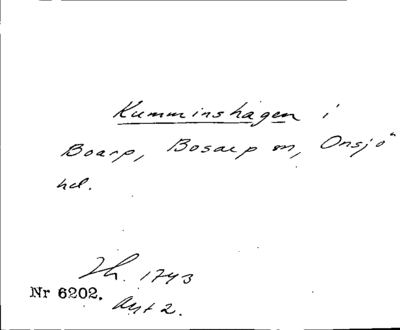 Kumminshagen i
Boarp, Bosarp sn, Onsjö
hd.
Jh. 1743
Nr 6202.
Akt 2.